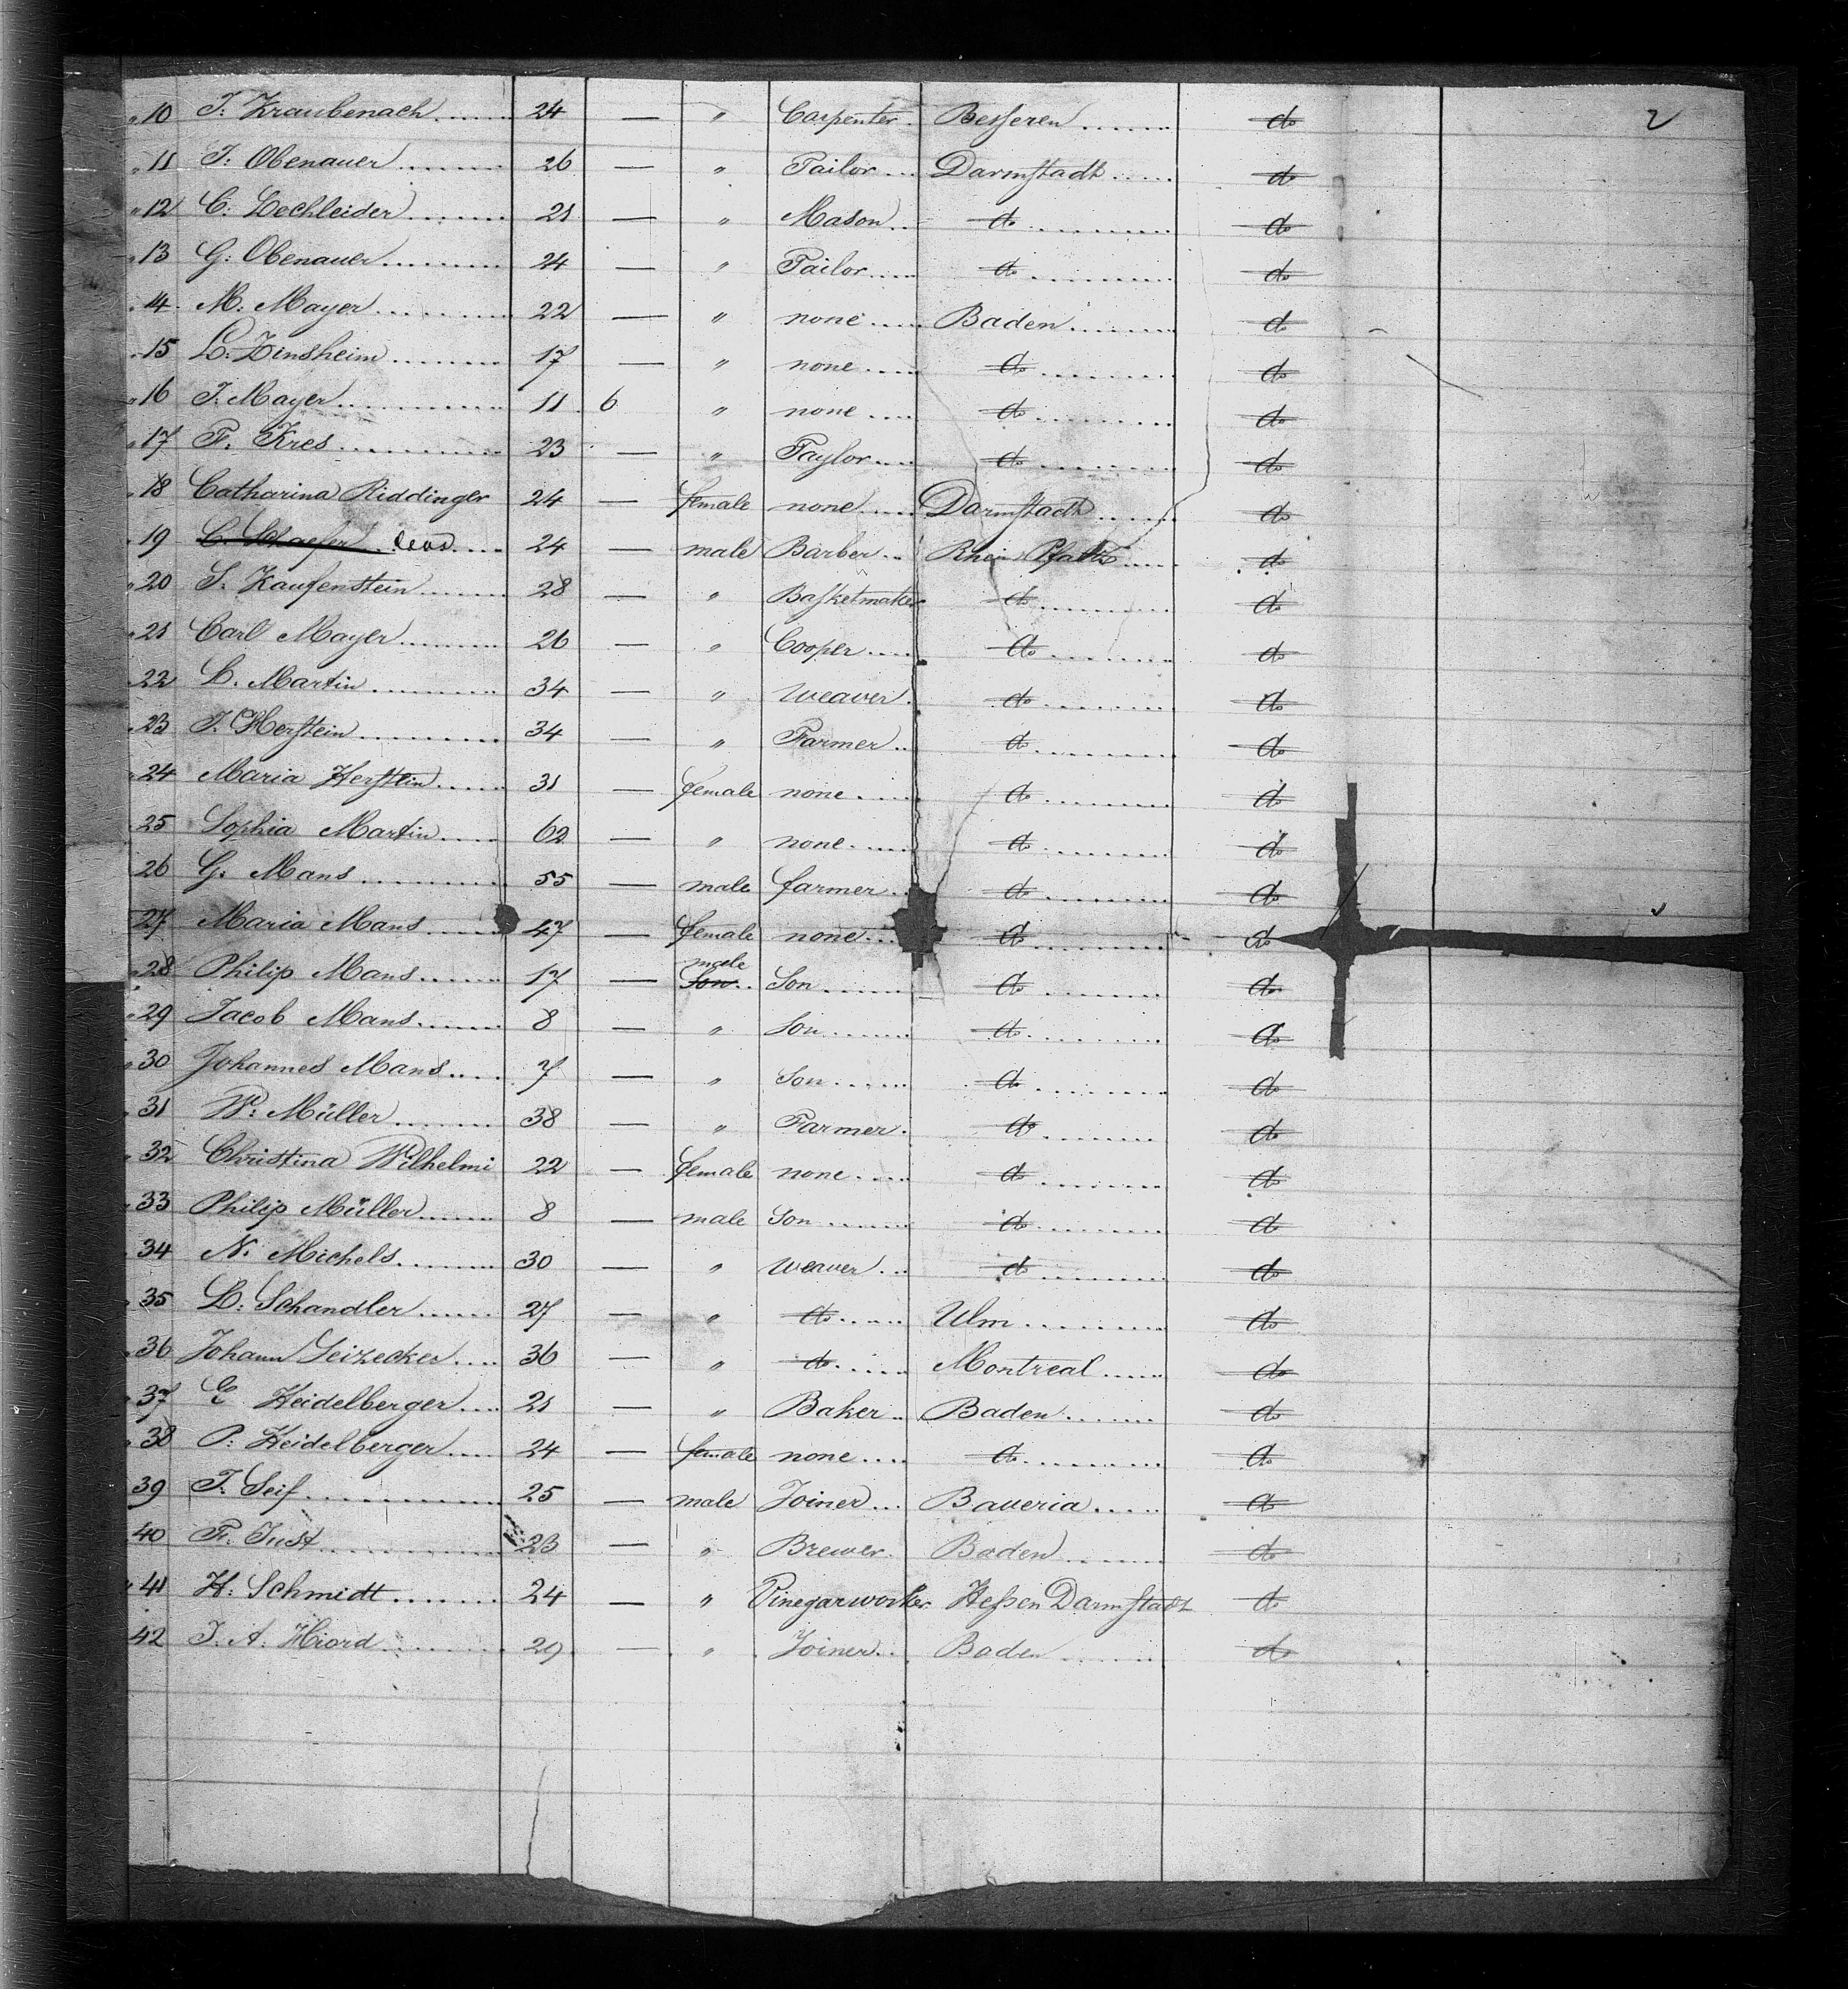 2
" 10 J. Kraubenach 24 — " Carpenter Besseren do
" 11 J. Obenauer 26 — " Tailor Darmstadt do
" 12 C. Lechleider 21 — " Mason do do
" 13 G. Obenauer 24 — " Tailor do do
" 14 M. Mayer 22 — " none Baden do
" 15 L. Zinsheim 17 — " none do do
" 16 J. Mayer 11 6 " none do do
" 17 F. Kres 23 — " Taylor do do
" 18 Catharina Riddinger 24 — female none Darmstadt do
" 19 C. Schaefer dead 24 — male Barber Rhein Pfaltz do
" 20 S. Kaufenstein 28 — " Basketmaker do do
" 21 Carl Mayer 26 — " Cooper do do
" 22 L. Martin 34 — " weaver do do
" 23 J. Herstein 34 — " Farmer do do
" 24 Maria Herstein 31 — female none do do
" 25 Sophia Martin 62 — " none do do
" 26 G. Mans 55 — male farmer do do
" 27 Maria Mans 47 — female none do do
" 28 Philip Mans 17 — Son male Son do do
" 29 Jacob Mans 8 — " Son do do
" 30 Johannes Mans 7 — " Son do do
" 31 W. Müller 38 — " Farmer do do
" 32 Christina Wilhelmi 22 — female none do do
" 33 Philip Müller 8 — male Son do do
" 34 N. Michels 30 — " weaver do do
" 35 L. Schandler 27 — " do Ulm do
" 36 Johann Seizecker 36 — " do Montreal do
" 37 E Heidelberger 21 — " Baker Baden do
" 38 P. Heidelberger 24 — female none do do
" 39 J. Seif 25 — male Joiner Baveria do
" 40 Fr. Just 23 — " Brewer Baden do
" 41 H. Schmidt 24 — " Vinegarworker Hessen Darmstadt do
" 42 J. A. Hiord 29 — " Joiner Baden do